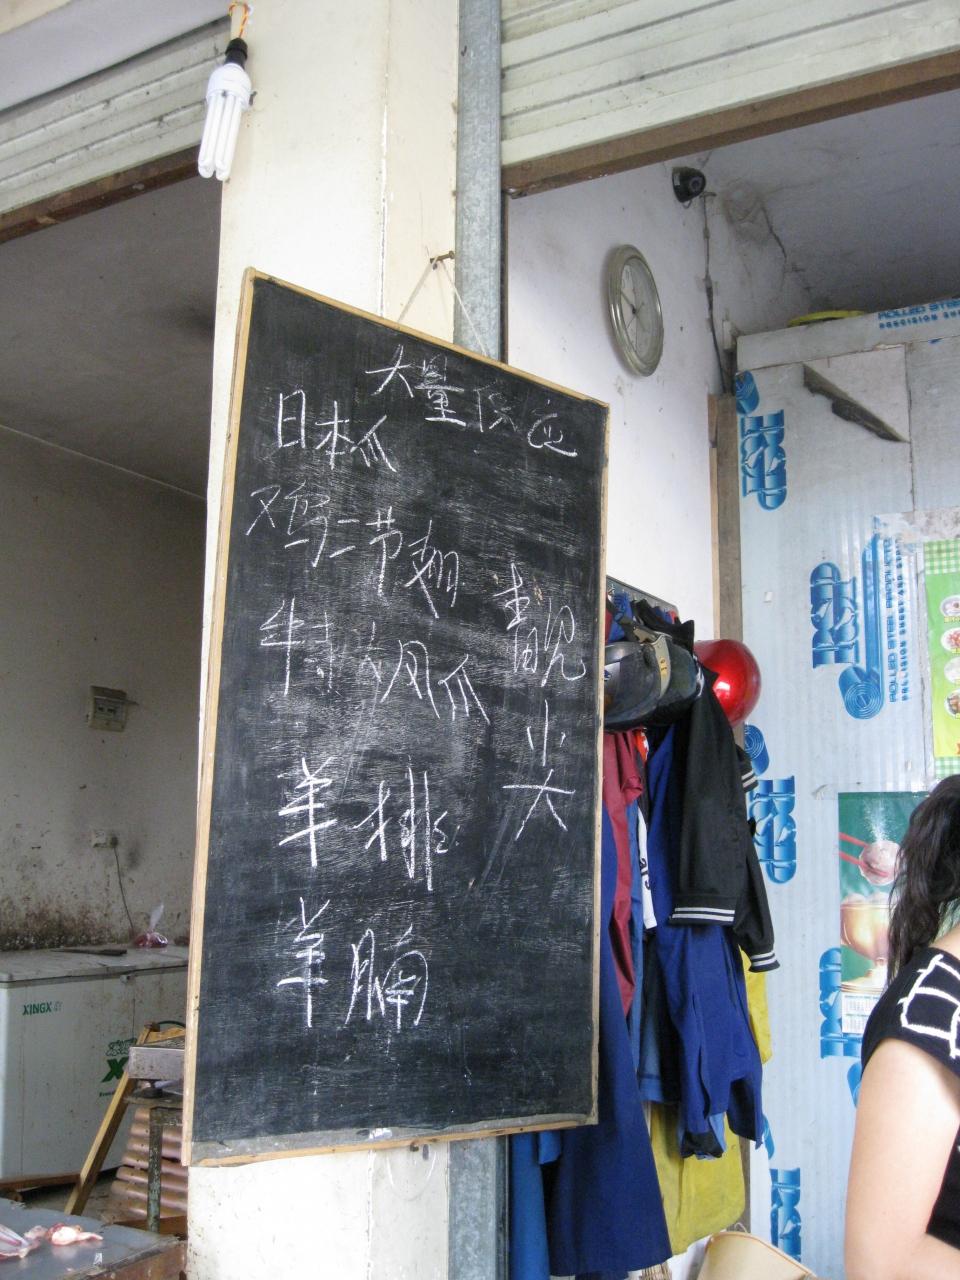 大量供应
日本爪
鸡二节翅
特大凤爪
羊排
羊腩
靓
小
大
XINGX
ROLLED STEEL
PRECISION
ROLLED STEEL PRODUCTS